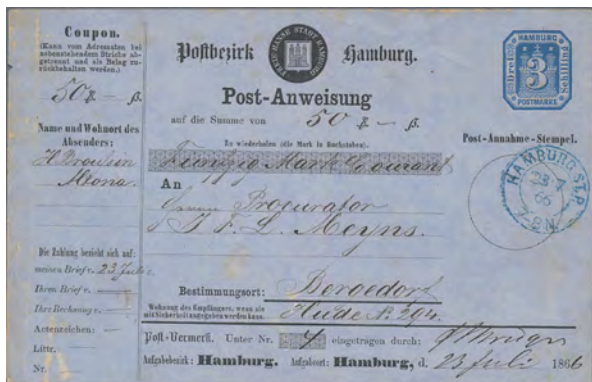 Coupon.
(Kann vom Adressaten bei
nebenstehendem Striche ab-
getrennt und als Belag zu-
rückbehalten werden.)
50 ₰ — β.
Name und Wohnort des
Absenders:
Altona.
Die Zahlung bezieht sich auf:
meinen Brief v. 23 Juli
Ihren Brief v. —
Ihre Rechnung v. —
Actenzeichen: —
Littr.
Nr.
Postbezirk Hamburg.
FREIE HANSE STADT HAMBURG
Post-Anweisung
auf die Summe von 50 ₰ — β.
Zu wiederholen (die Mark in Buchstaben).
Funfzig Mark Courant
An
Herrn Procurator
J. F. L. Meyns.
Bestimmungsort: Bergedorf
Wohnung des Empfängers, wenn sie
mit Sicherheit angegeben werden kann.
Hude № 294.
Post-Vermerk. Unter Nr. 4 eingetragen durch:
Aufgabebezirk: Hamburg. Aufgabeort: Hamburg, d. 23 Juli 1866
HAMBURG
Drei 3 Schilling
POSTMARKE
Post-Annahme-Stempel.
HAMBURG ST.P.
23 7
66